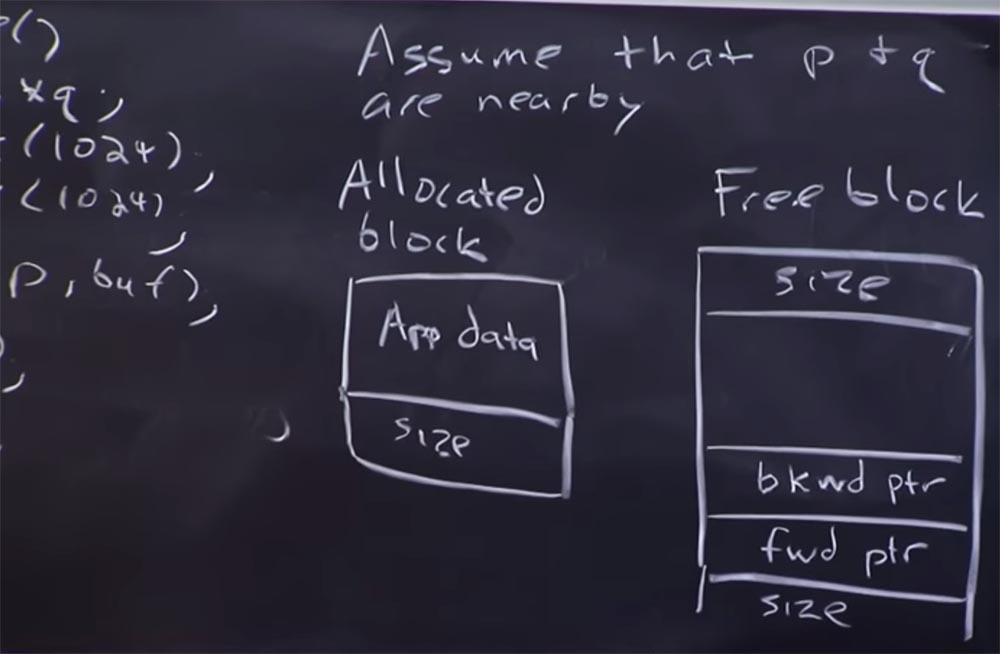 ()
*q;
(1024);
(1024);
p, buf);
);
Assume that p + q
are nearby
Allocated
block
App data
size
Free block
size
bkwd ptr
fwd ptr
size